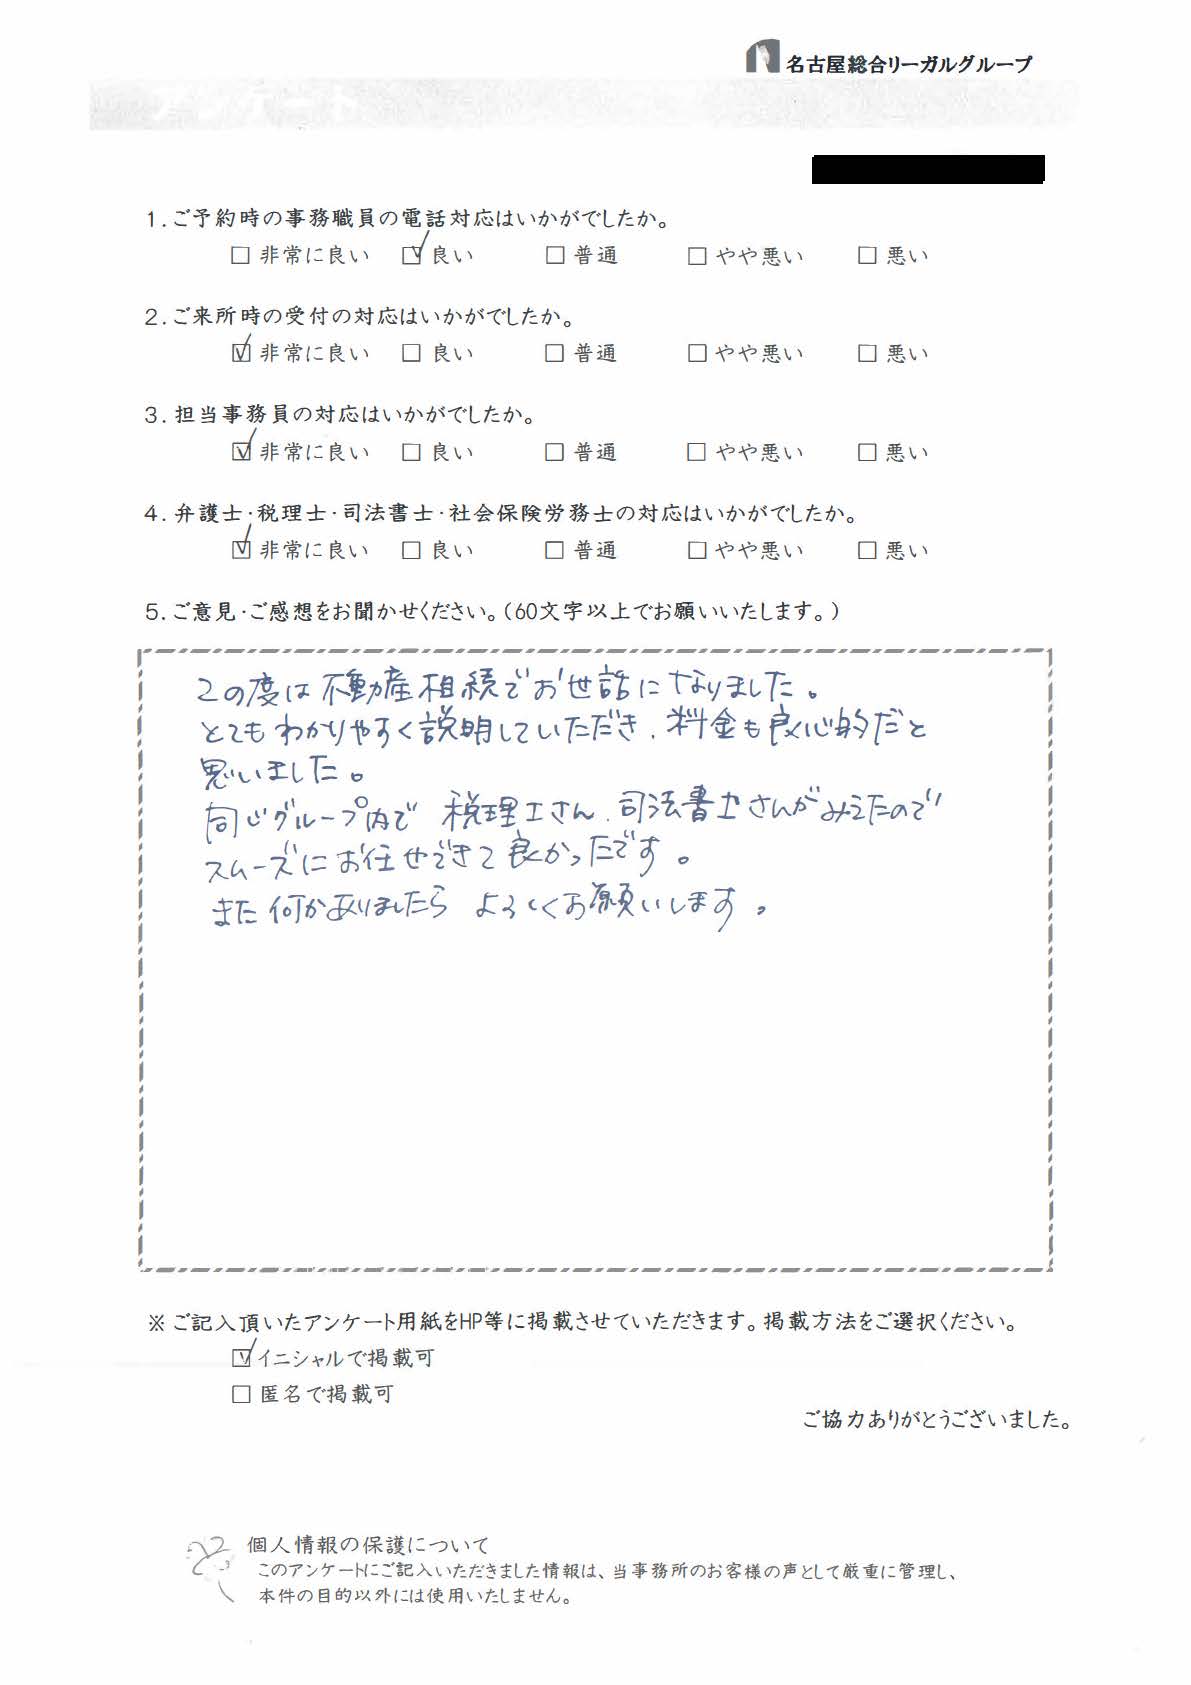 名古屋総合リーガルグループ
アンケート
1.ご予約時の事務職員の電話対応はいかがでしたか。
□ 非常に良い ☑ 良い □ 普通 □ やや悪い □ 悪い
2.ご来所時の受付の対応はいかがでしたか。
☑ 非常に良い □ 良い □ 普通 □ やや悪い □ 悪い
3.担当事務員の対応はいかがでしたか。
☑ 非常に良い □ 良い □ 普通 □ やや悪い □ 悪い
4.弁護士・税理士・司法書士・社会保険労務士の対応はいかがでしたか。
☑ 非常に良い □ 良い □ 普通 □ やや悪い □ 悪い
5.ご意見・ご感想をお聞かせください。(60文字以上でお願いいたします。)
この度は不動産相続でお世話になりました。
とてもわかりやすく説明していただき、料金も良心的だと
思いました。
同じグループ内で 税理士さん、司法書士さんがみえたので
スムーズにお任せできて良かったです。
また何かありましたら よろしくお願いします。
※ご記入頂いたアンケート用紙をHP等に掲載させていただきます。掲載方法をご選択ください。
☑ イニシャルで掲載可
□ 匿名で掲載可
ご協力ありがとうございました。
個人情報の保護について
このアンケートにご記入いただきました情報は、当事務所のお客様の声として厳重に管理し、
本件の目的以外には使用いたしません。